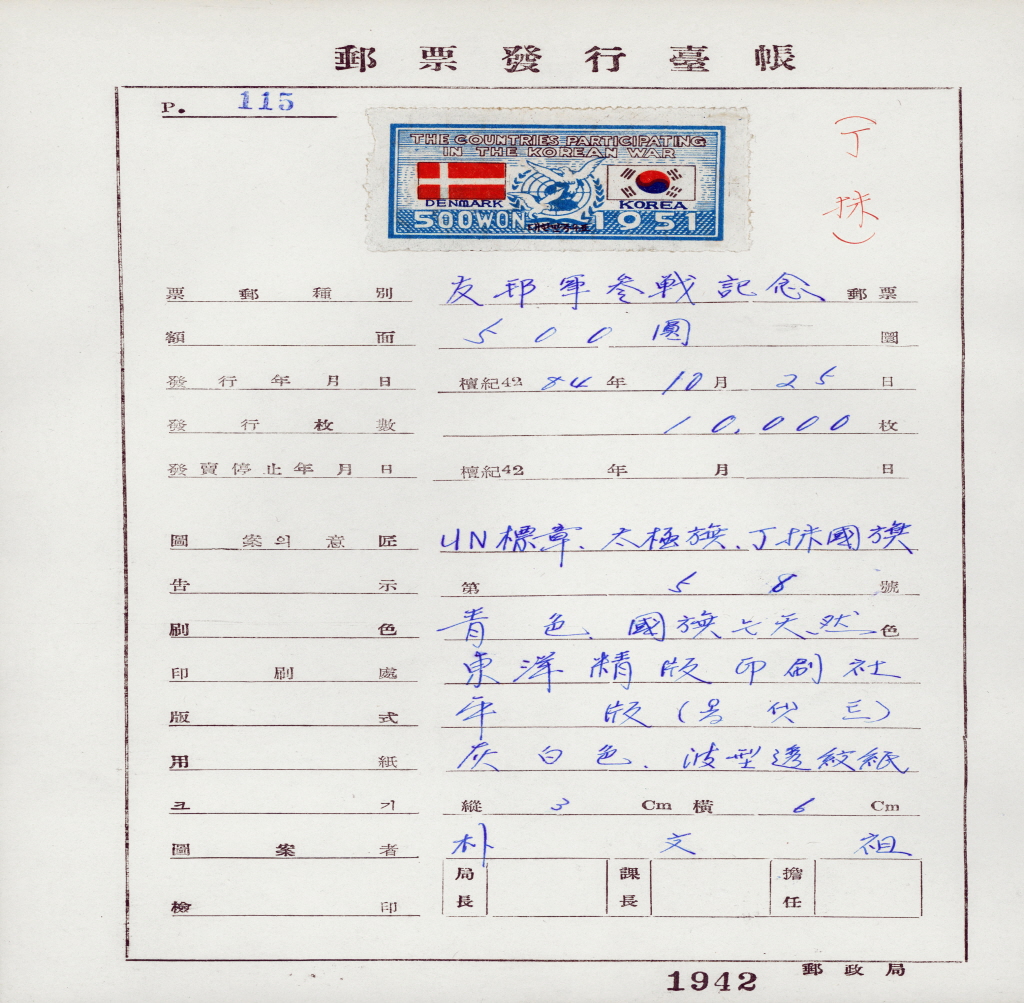 郵票發行臺帳
P. 115
THE COUNTRIES PARTICIPATING
IN THE KOREAN WAR
DENMARK KOREA
500WON 1951
(丁抹)
票郵種別 友邦軍參戰記念 郵票
額面 500圓 圜
發行年月日 檀紀42 84年 10月 25日
發行枚數 10,000枚
發賣停止年月日 檀紀42 年 月 日
圖案의意匠 UN標章、太極旗、丁抹國旗
告示 第 58 號
刷色 青色、國旗는天然色
印刷處 東洋精版印刷社
版式 平版
用紙 灰白色、波型透紋紙
크기 縱 3 Cm 橫 6 Cm
圖案者 朴文祖
檢印 局長 課長 擔任
1942 郵政局